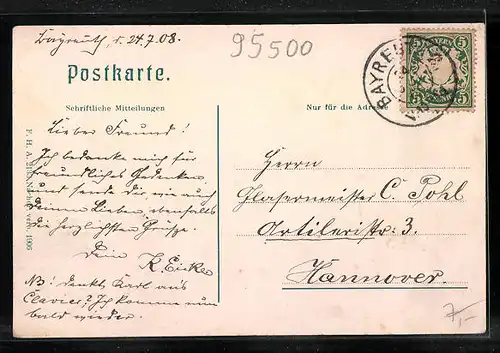 Bayreuth, d. 24.7.08.
95500
Postkarte.
Schriftliche Mitteilungen
Nur für die Adresse
BAYREUTH
5 5
Lieber Freund!
Ich bedanke mich für
freundliches Gedenken,
und sende dir, wie auch
deinen Lieben, ebenfalls
die herzlichsten Grüsse.
Dein
K. Eicke
NB! denkt Karl aus
Clavier? Ich komme nun
bald wieder.
Herrn
Glasermeister C. Pohl
Artilleristr. 3.
Hannover.
F. H. A.
1906
7,-